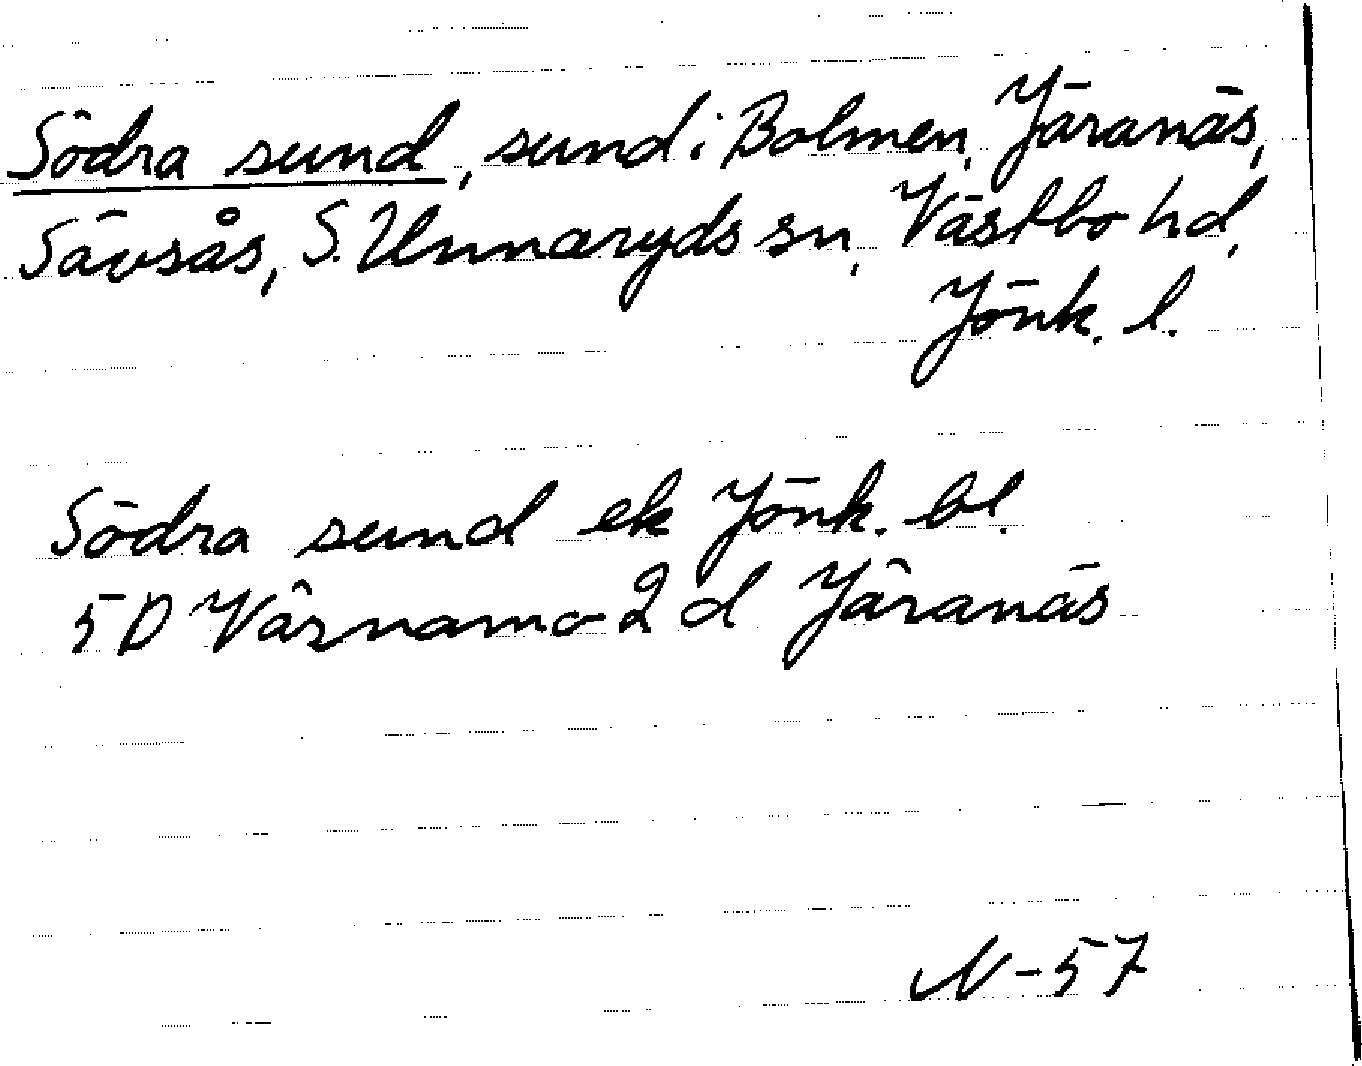 Södra sund, sund i Bolmen, Järanäs,
Sävsås, S. Unnaryds sn, Västbo hd,
Jönk. l.
Södra sund ek Jönk. bl.
5D Värnamo 2 d Järanäs
N-57